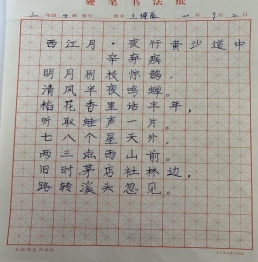 硬笔书法纸
西江月·夜行黄沙道中
辛弃疾
明月别枝惊鹊，
清风半夜鸣蝉。
稻花香里话丰年，
听取蛙声一片。
七八个星天外，
两三点雨山前。
旧时茅店社林边，
路转溪头忽见。